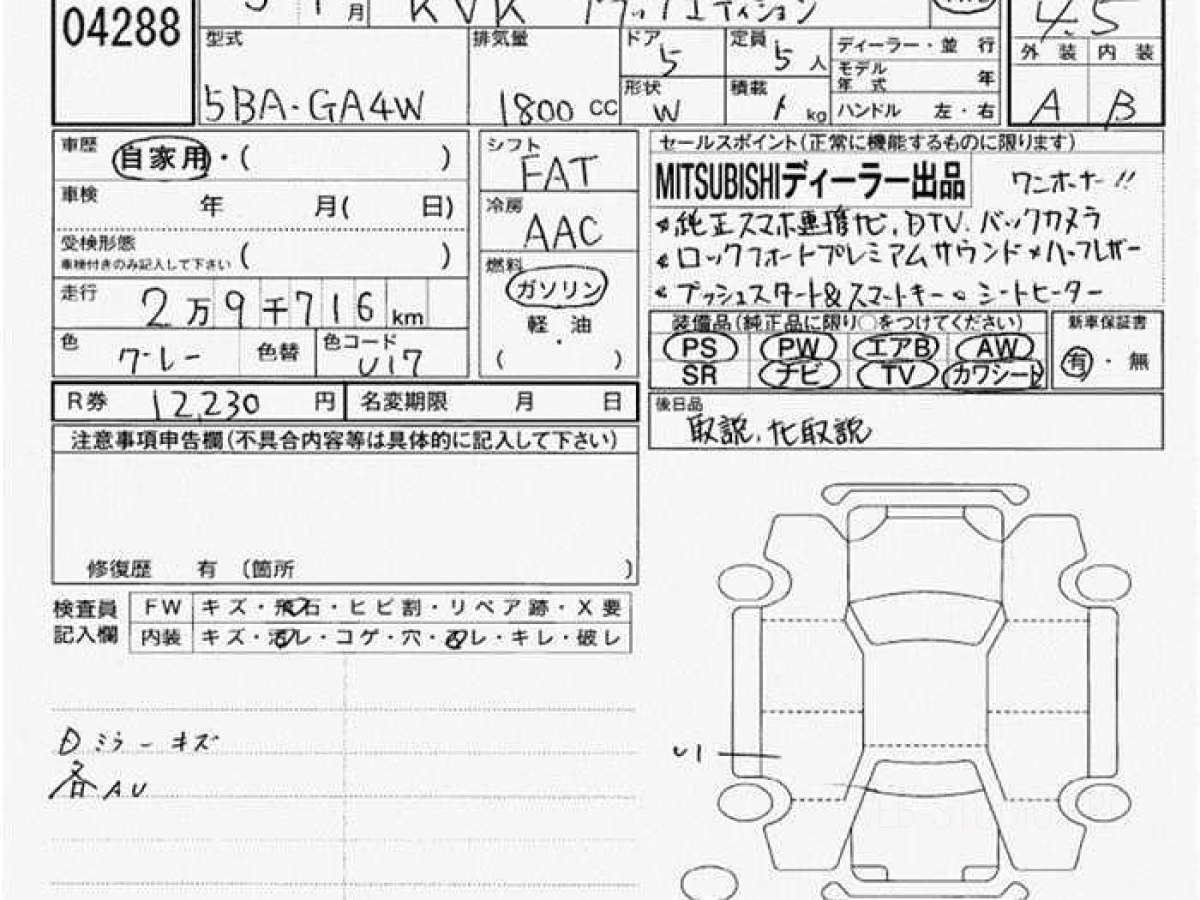 04288
月 RVR ブラックエディション
4.5
型式 5BA-GA4W
排気量 1800 CC
ドア 5
定員 5 人
形状 W
積載 kg
ディーラー・並 行
モデル年式 年
ハンドル 左・右
外 装 内 装
A B
車歴 自家用・( )
車検 年 月( 日)
受検形態 ( )
車検付きのみ記入して下さい
走行 2万9千716km
色 グレー 色替 色コード U17
シフト FAT
冷房 AAC
燃料 ガソリン
軽・油
( )
セールスポイント(正常に機能するものに限ります)
MITSUBISHIディーラー出品 ワンオーナー!!
純正スマホ連携ナビ,DTV.バックカメラ
ロックフォードプレミアムサウンド ハーフレザー
プッシュスタート&スマートキー シートヒーター
装備品(純正品に限り○をつけてください) 新車保証書
PS PW エアB AW
SR ナビ TV カワシート
有・無
R券 12,230 円 名変期限 月 日
後日品
取説,ナビ取説
注意事項申告欄(不具合内容等は具体的に記入して下さい)
修復歴 有 (箇所 )
検査員記入欄
FW キズ・飛石・ヒビ割・リペア跡・X要
内装 キズ・汚レ・コゲ・穴・スレ・キレ・破レ
Dミラーキズ
各AU
U1